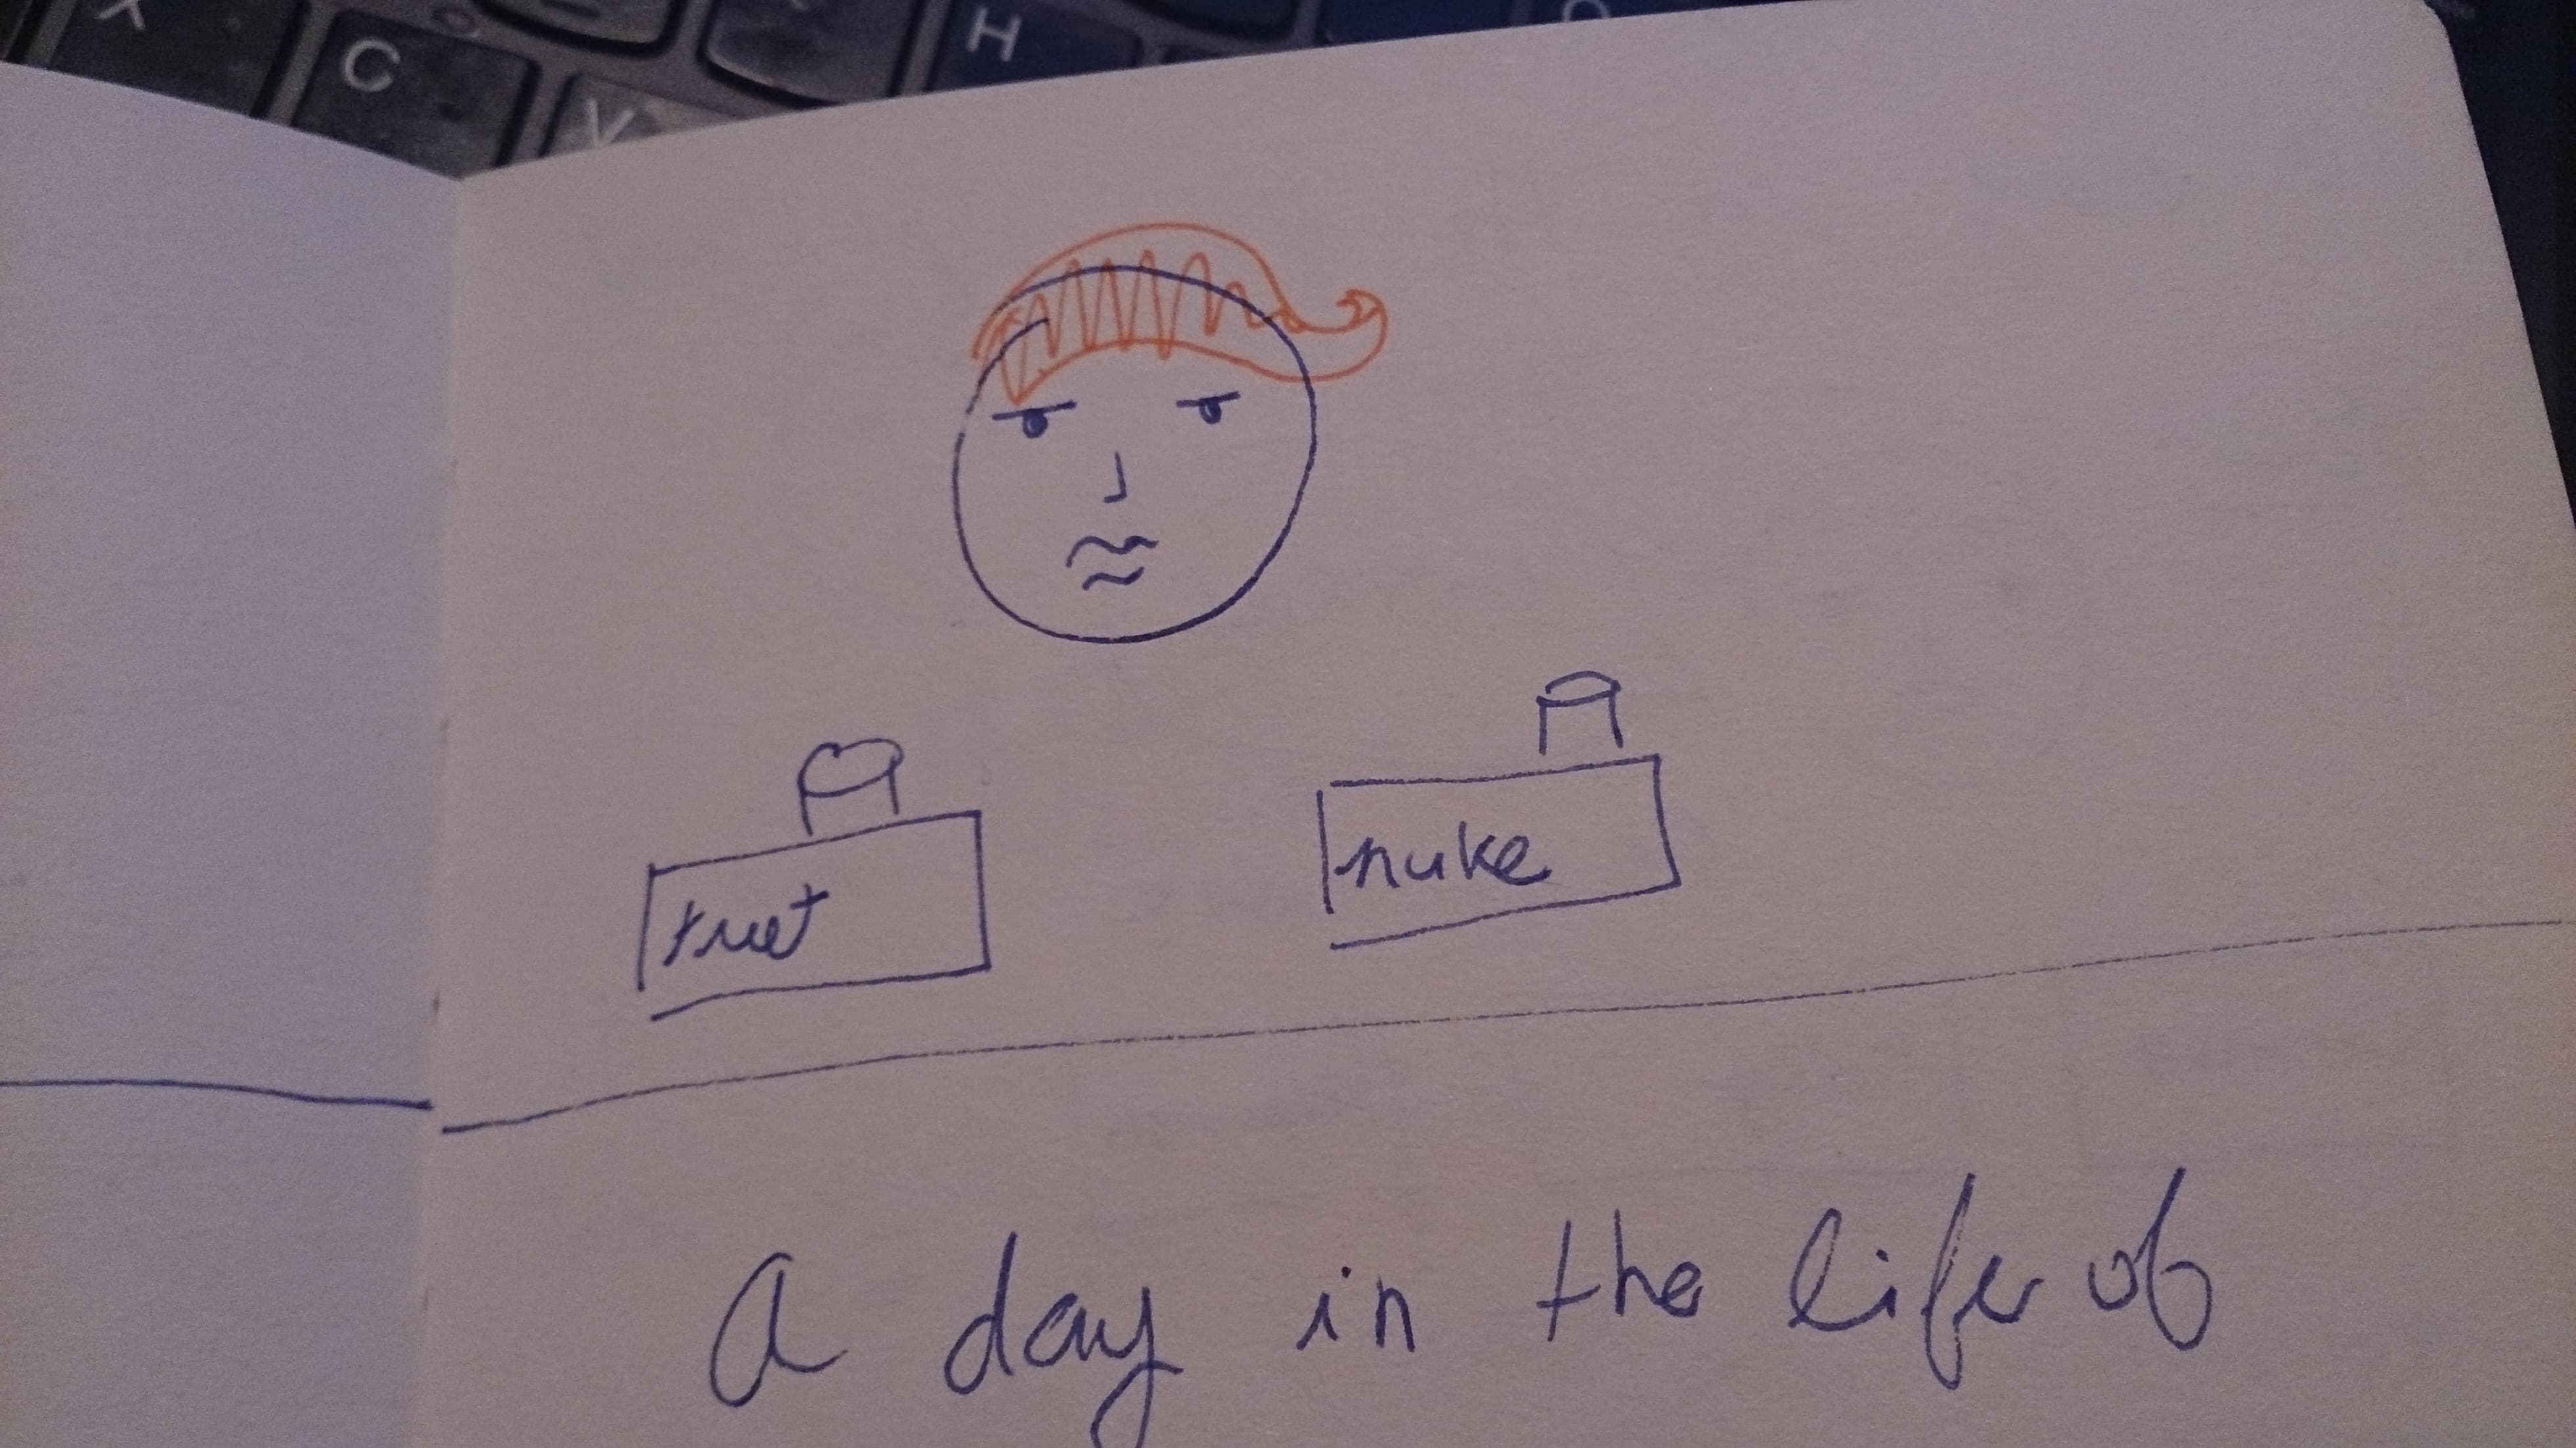 X C V H
nuke
A day in the life of